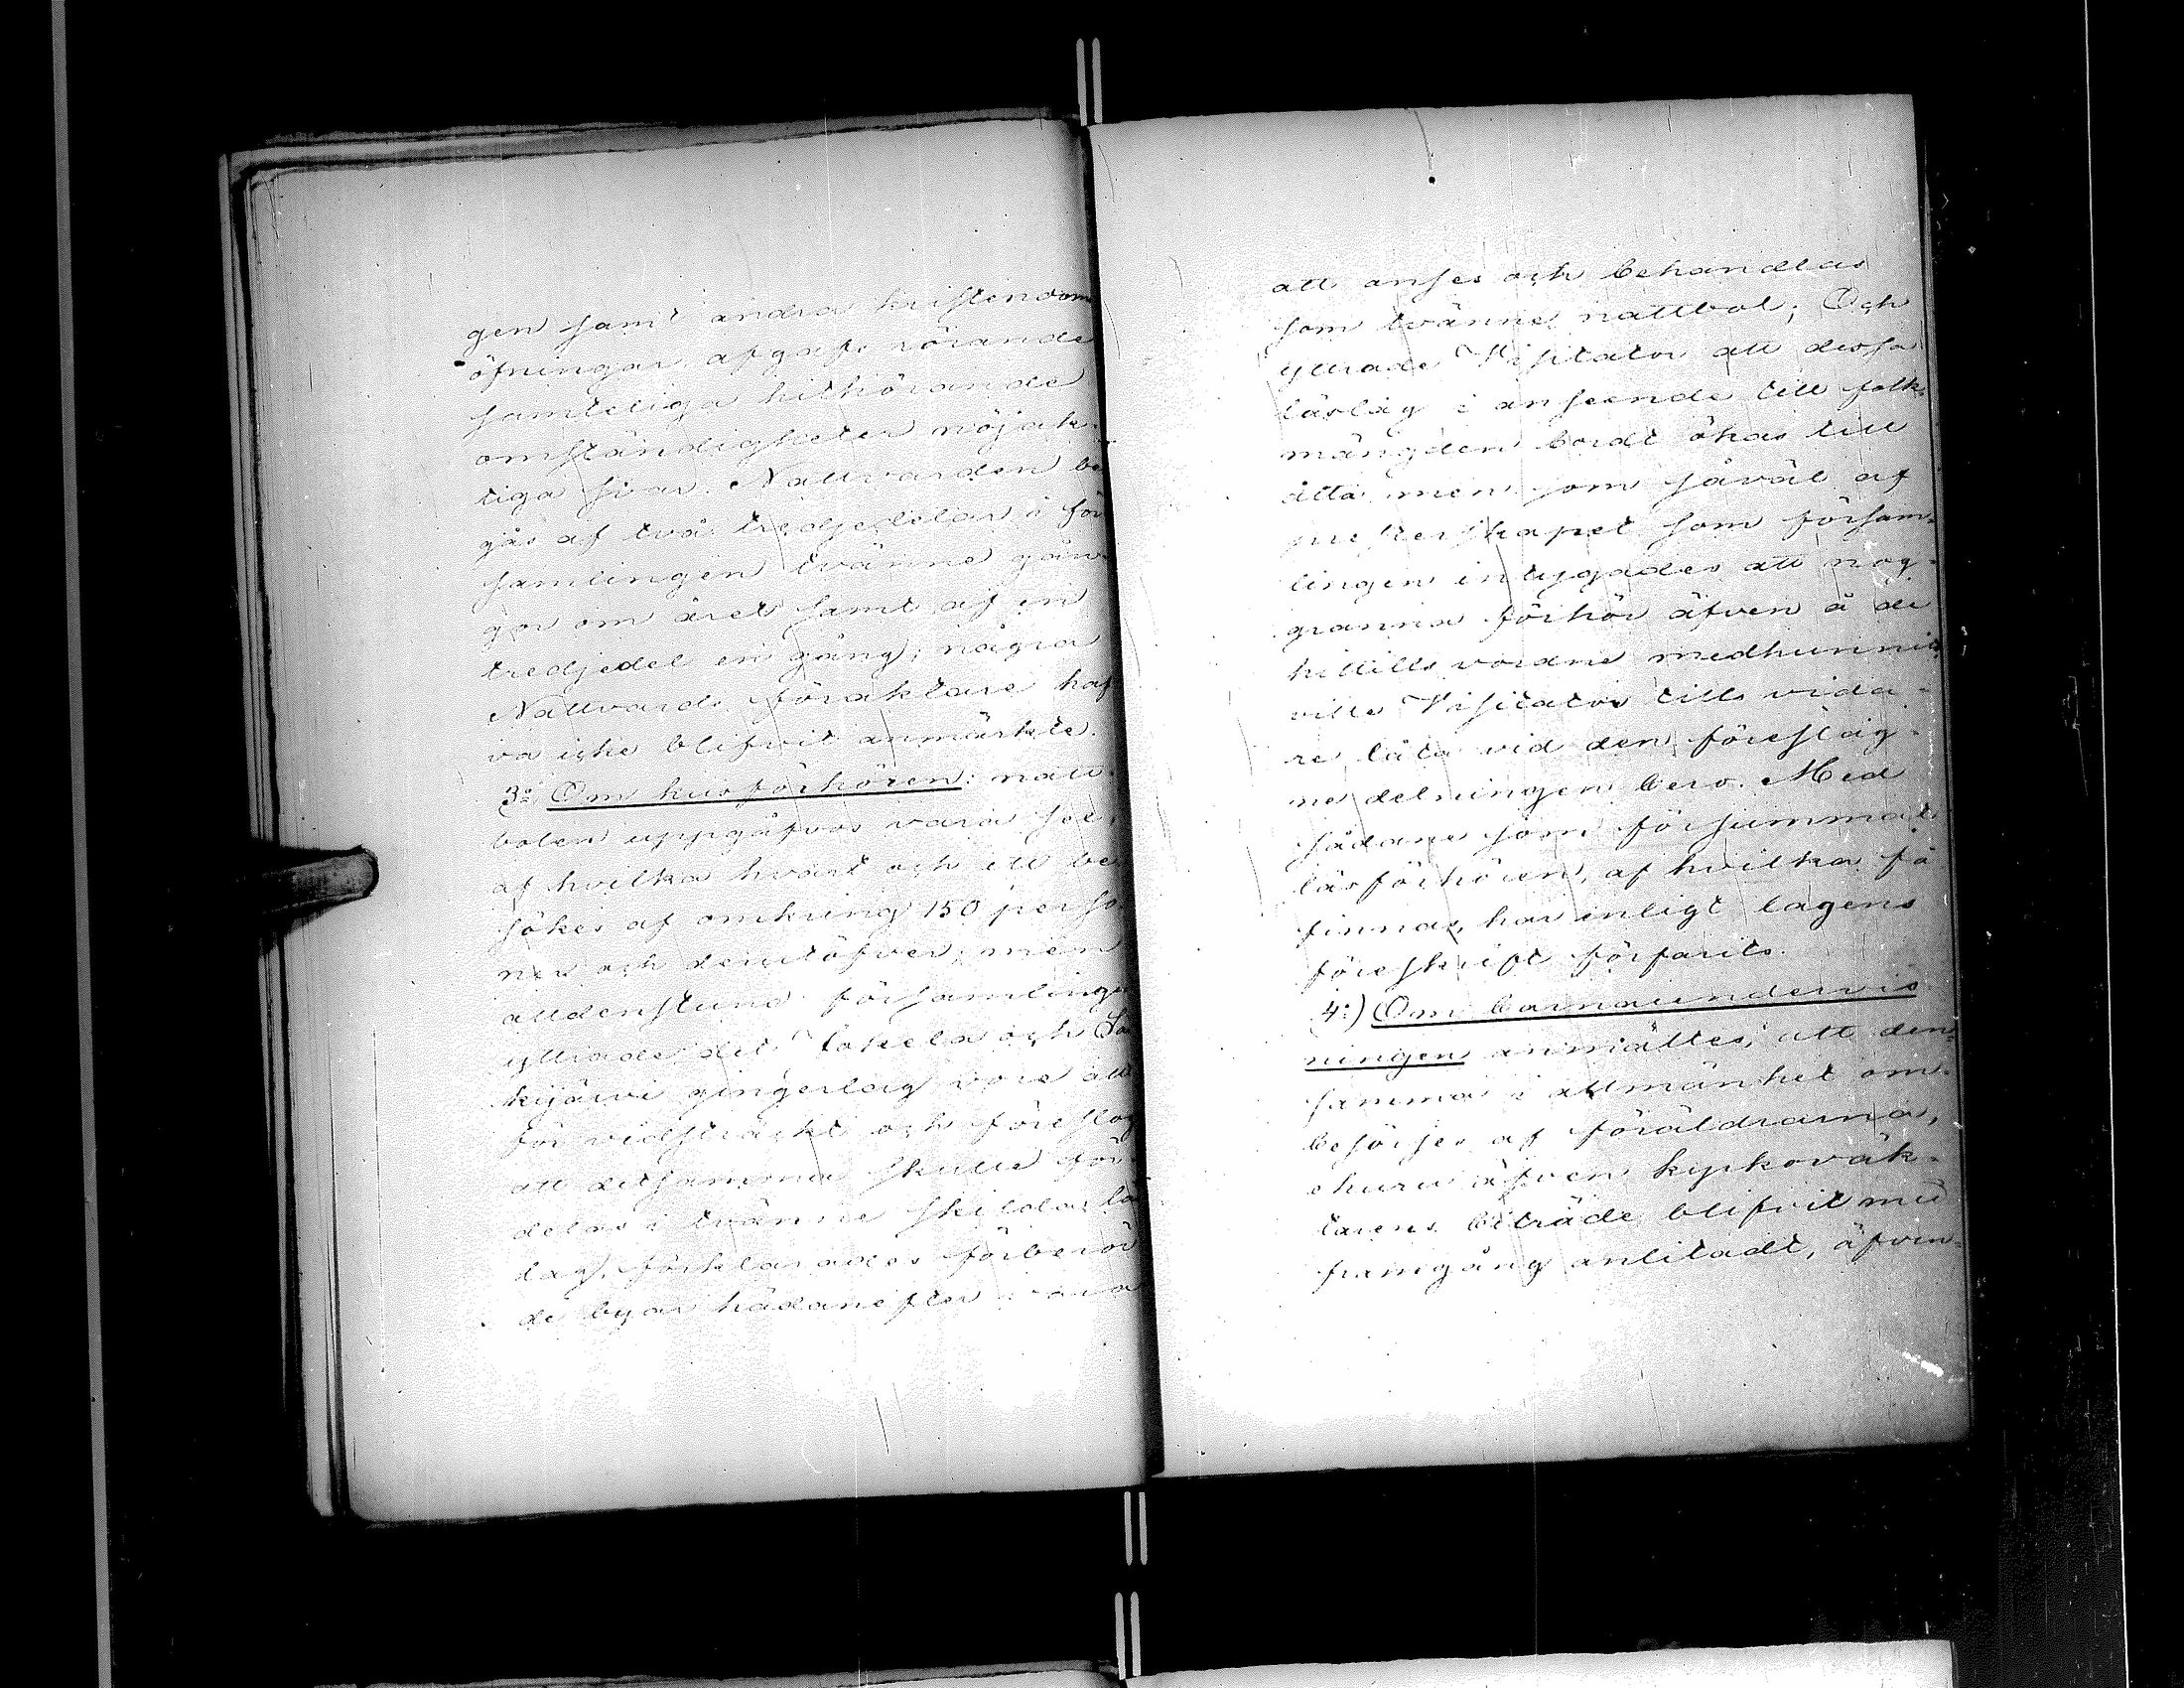 gen samt andra kristendom
öfningar afgafs rörande
samteliga hithörande
omständigheter nöjak-
tiga svar. Nattvarden be
gås af två tredjedelar i för
samlingen tvänne gån
gor om året samt af en
tredjedel en gång; några
Nattvards föraktare haf
va icke blifvit anmärkte.
3:o Om husförhören: natt-
bolen uppgåfvos vara sex,
af hvilka hvart och ett be
sökes af omkring 150 perso
ner och derutöfver; men
alldenstund församlinge
yttrade det Tokela och Sa
kijärvi gingerlag vore allt
för vidsträckt och föreslog
att detsamma skulle för-
delas i tvänne skilda lä
lag, förklarades förberör
de byar hädanefter vara
att anses och behandlas
som tvänne nattbol; Och
yttrade Visitator att dessa
läslag i anseende till folk-
mängden bordt ökas till
åtta, men som såväl af
presterskapet som försam-
lingen intygades att nog-
granna förhör äfven å de
hittills vordne medhunnits,
ville Visitator tills vida-
re låta vid den föreslag-
ne delningen bero. Med
sådane som försummat
läsförhören, af hvilka få
finnas, har enligt lagens
föreskrift förfarits.
4:) Om barnaundervis
ningen anmältes, att den-
samma i allmänhet om-
besörjes af föräldrarna,
ehuru äfven kyrkoväk-
tarens biträde blifvit med
framgång anlitadt, äfven-